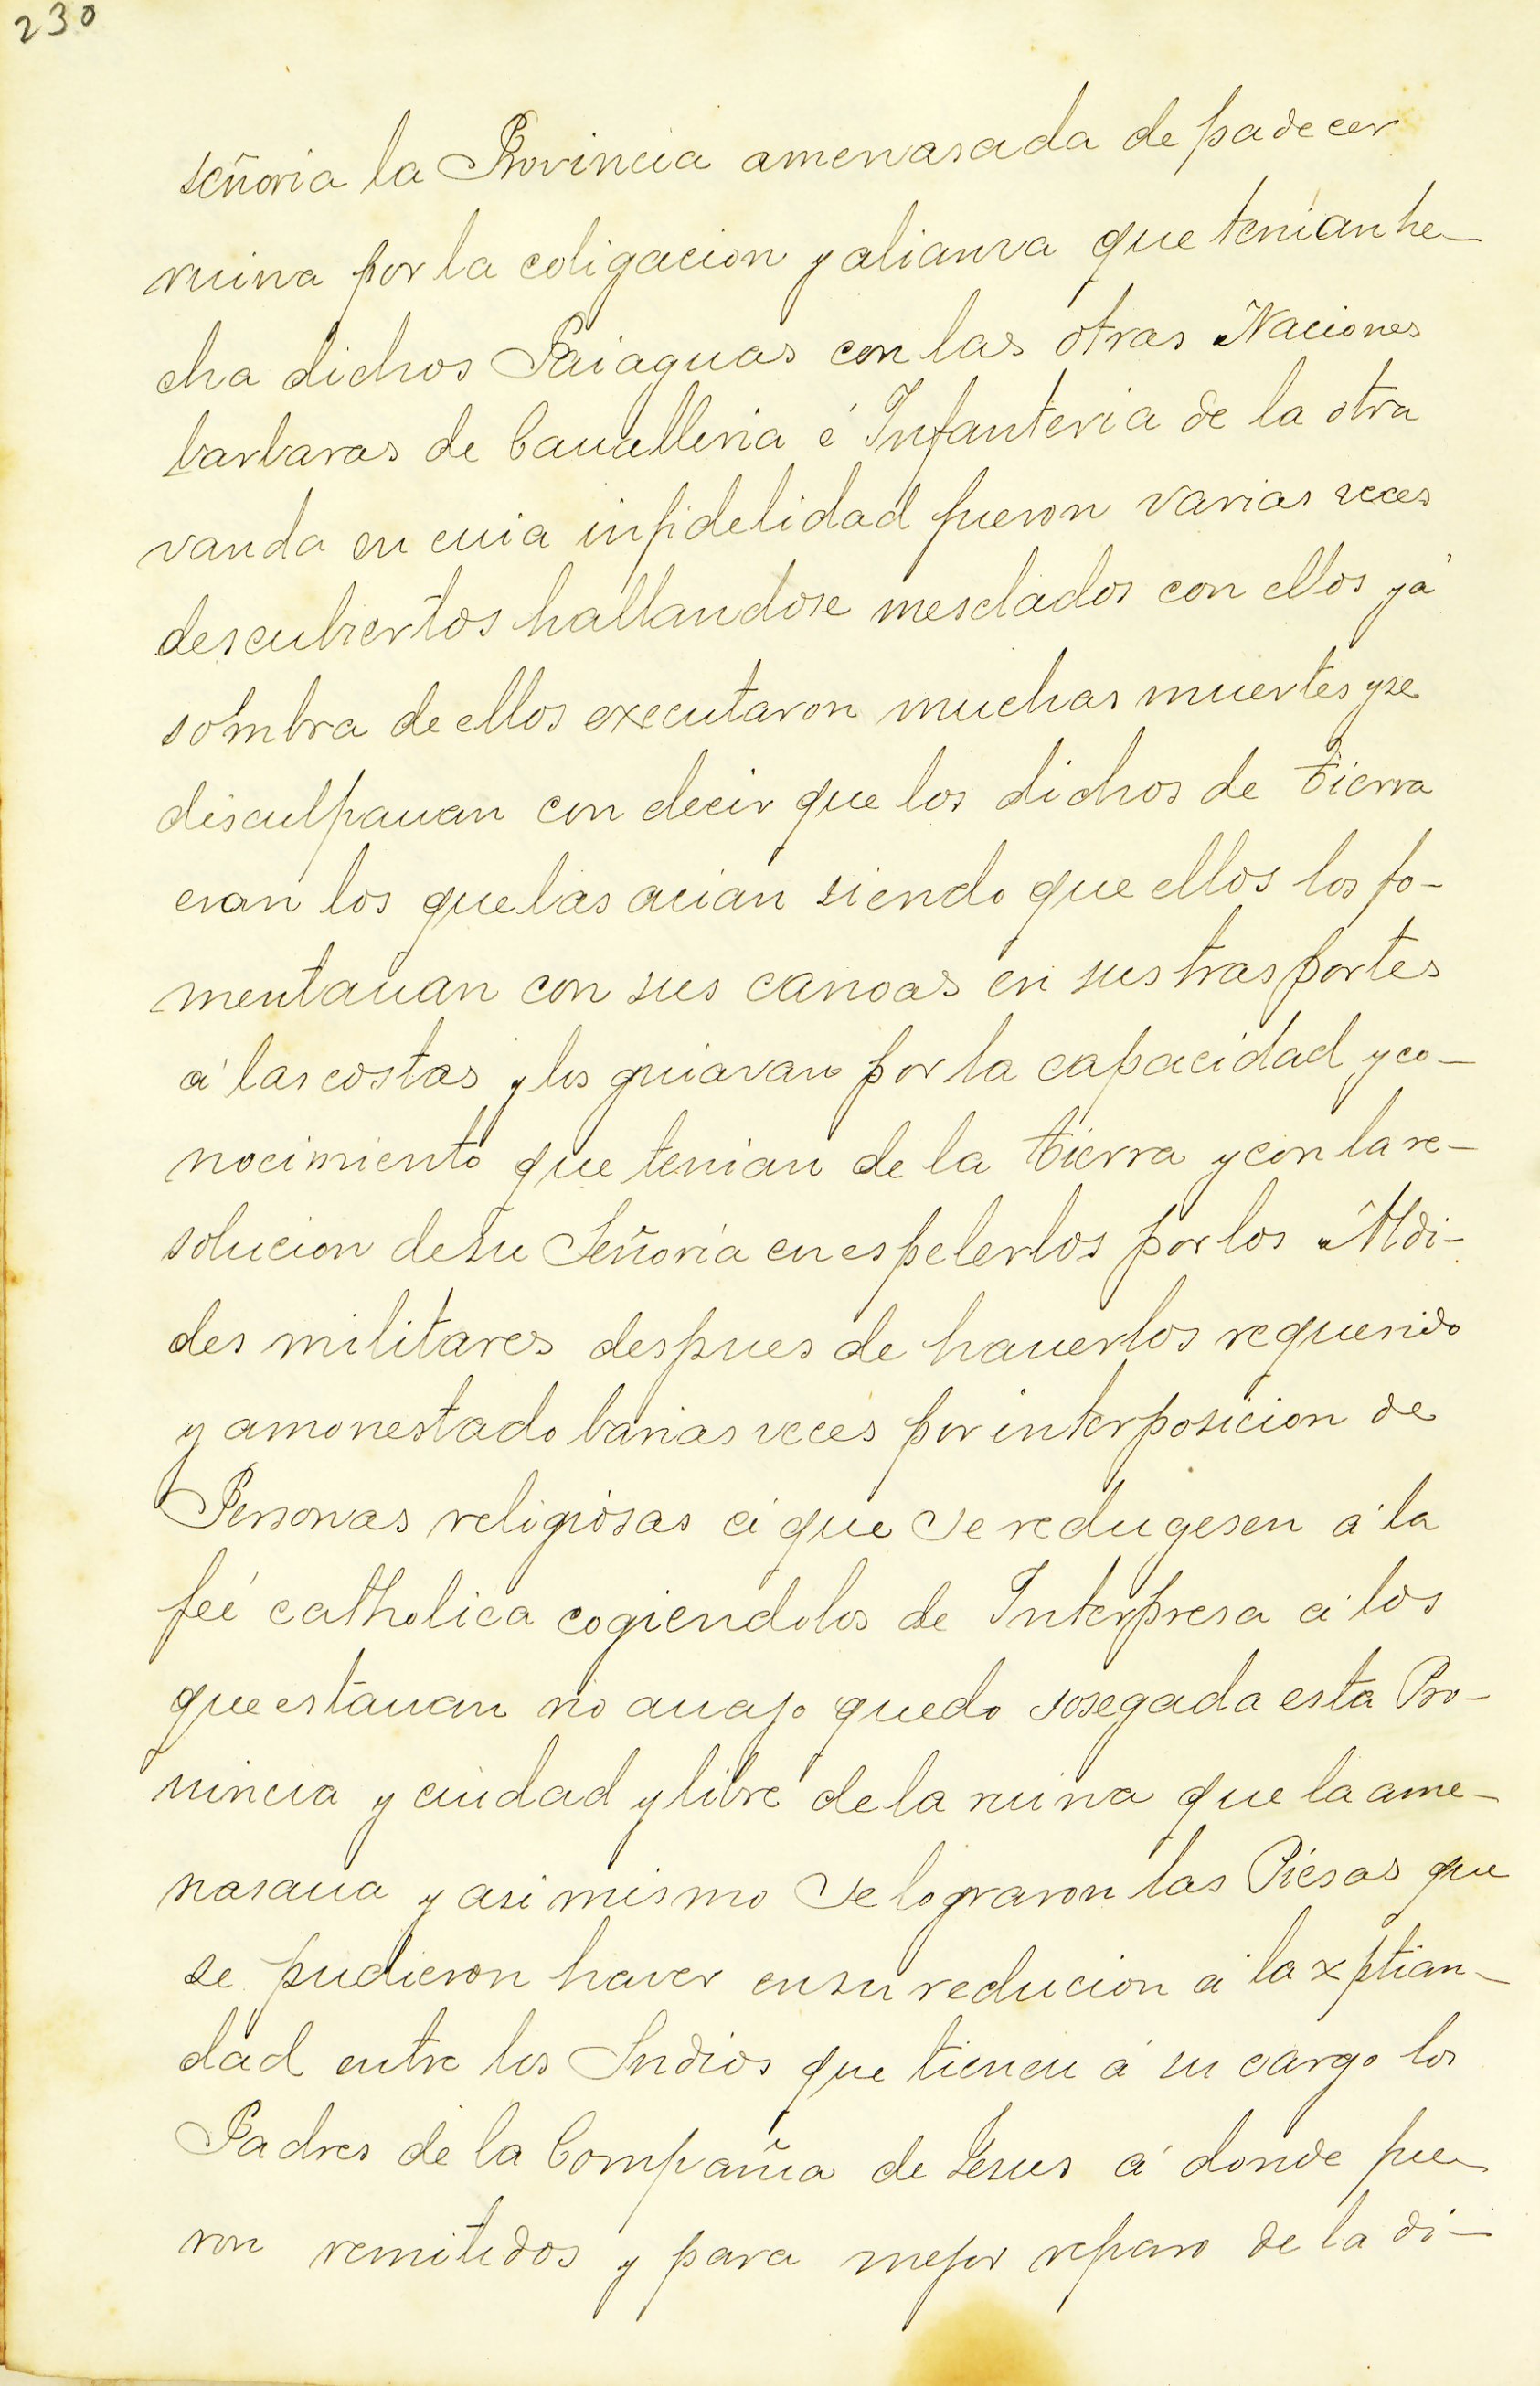 230
señoria la Provincia amenasada de padecer
ruina por la coligacion y alianza que tenian he-
cha dichos Paiaguas con las otras Naciones
barbaras de Caualleria é Infanteria de la otra
vanda en cuia infidelidad fueron varias veces
descubiertos hallandose mesclados con ellos y á
sombra de ellos executaron muchas muertes y se
disculpauan con decir que los dichos de tierra
eran los que las acian siendo que ellos los fo-
mentauan con sus canoas en sus trasportes
á las costas y los guiavan por la capacidad y co-
nocimiento que tenian de la tierra y con la re-
solucion de su Señoría en espelerlos por los Mdi-
des militares despues de hauerlos requerido
y amonestado barias veces por interposicion de
Personas religiosas á que se redugesen á la
feé catholica cogiendolos de Interpresa á los
que estauan rio auajo quedo sosegada esta Pro-
uincia y ciudad y libre de la ruina que la ame-
nasaua y asi mismo se lograron las Piesas que
se pudieron haver en su reducion á la xptian-
dad entre los Indios que tienen á su cargo los
Padres de la Compañia de Jesus á donde fue-
ron remitidos y para mejor reparo de la di-